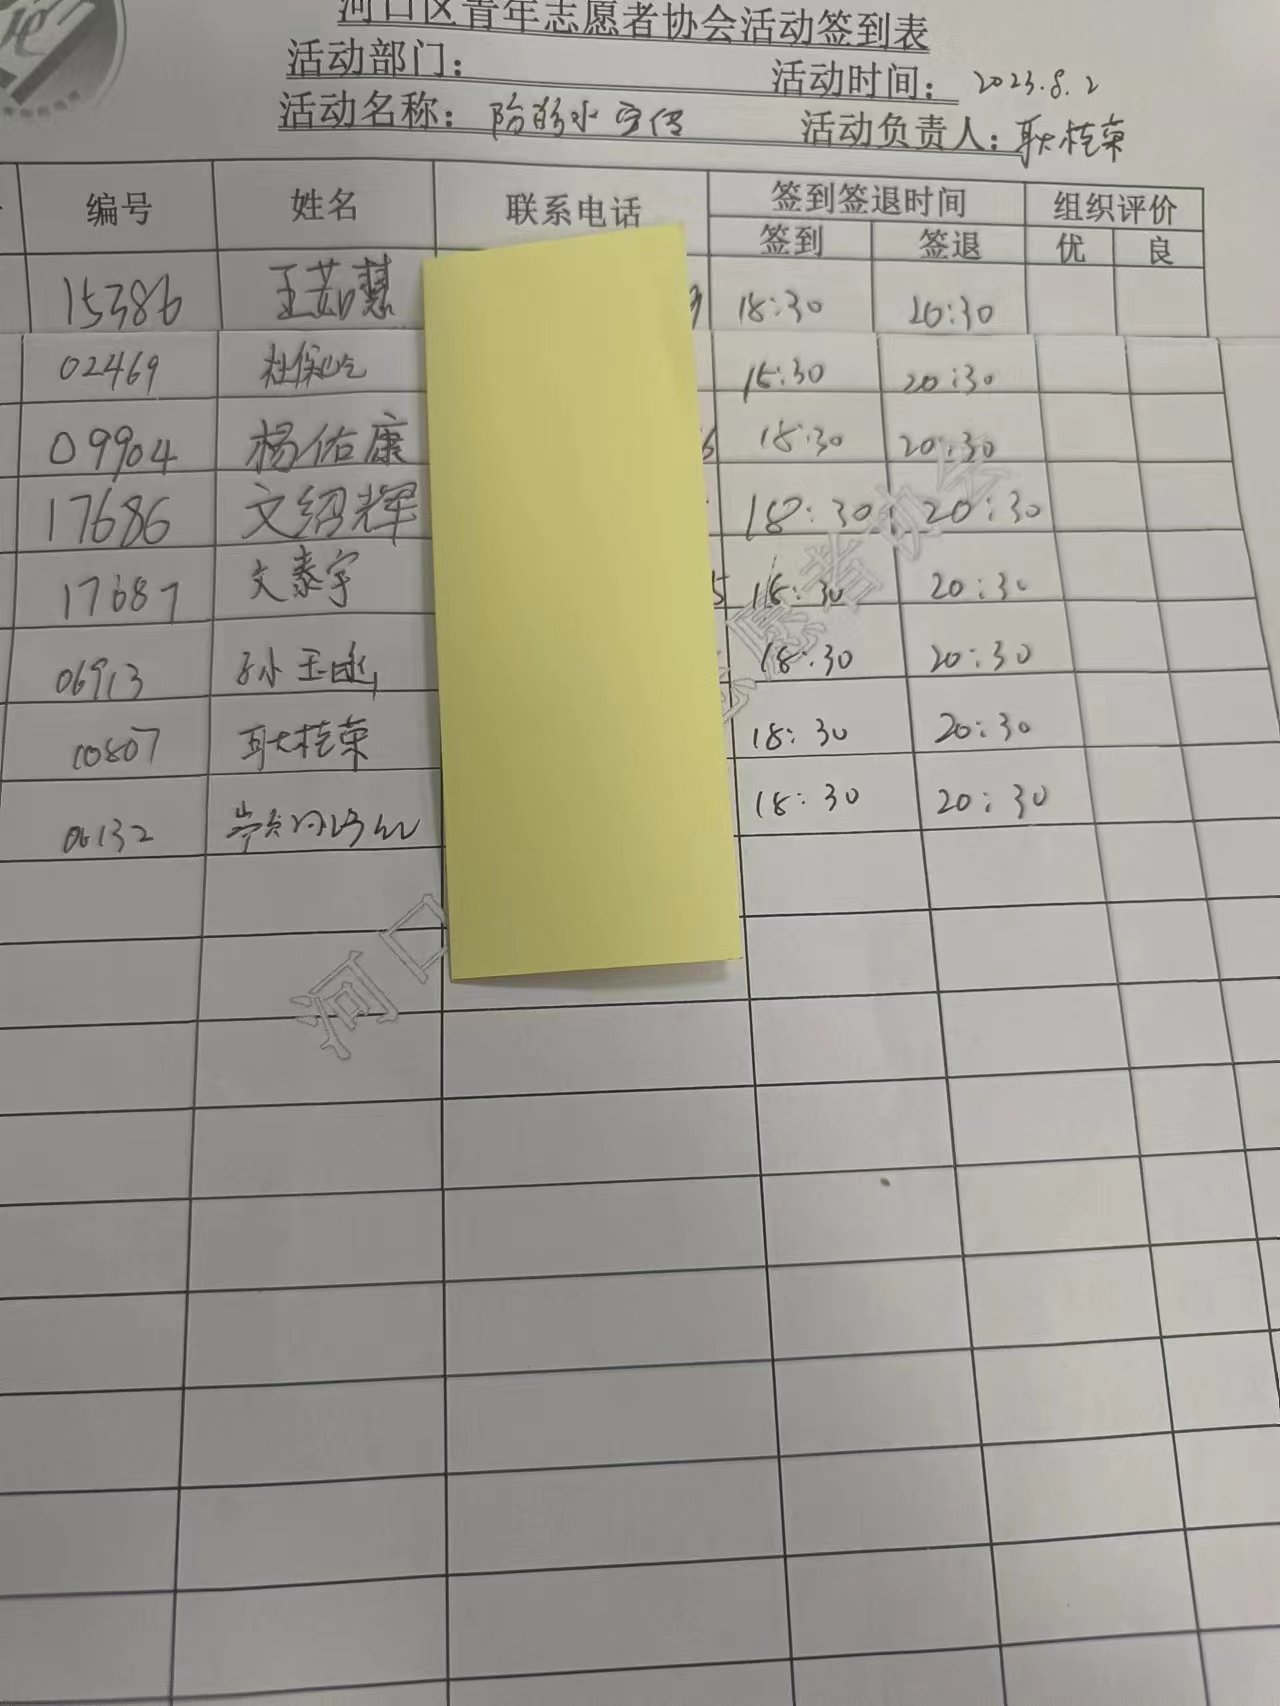 河口区青年志愿者协会活动签到表
活动部门：
活动时间： 2023.8.2
活动名称： 防溺水宣传 活动负责人：耿桂荣
编号 姓名 联系电话 签到签退时间 组织评价
签到 签退 优 良
15386 王茹慧 18:30 20:30
02469 18:30 20:30
09904 杨佑康 18:30 20:30
17686 文绍辉 18:30 20:30
17687 文泰宇 18:30 20:30
06913 孙玉 18:30 20:30
10807 耿桂荣 18:30 20:30
06132 18:30 20:30
河口
志愿者协会